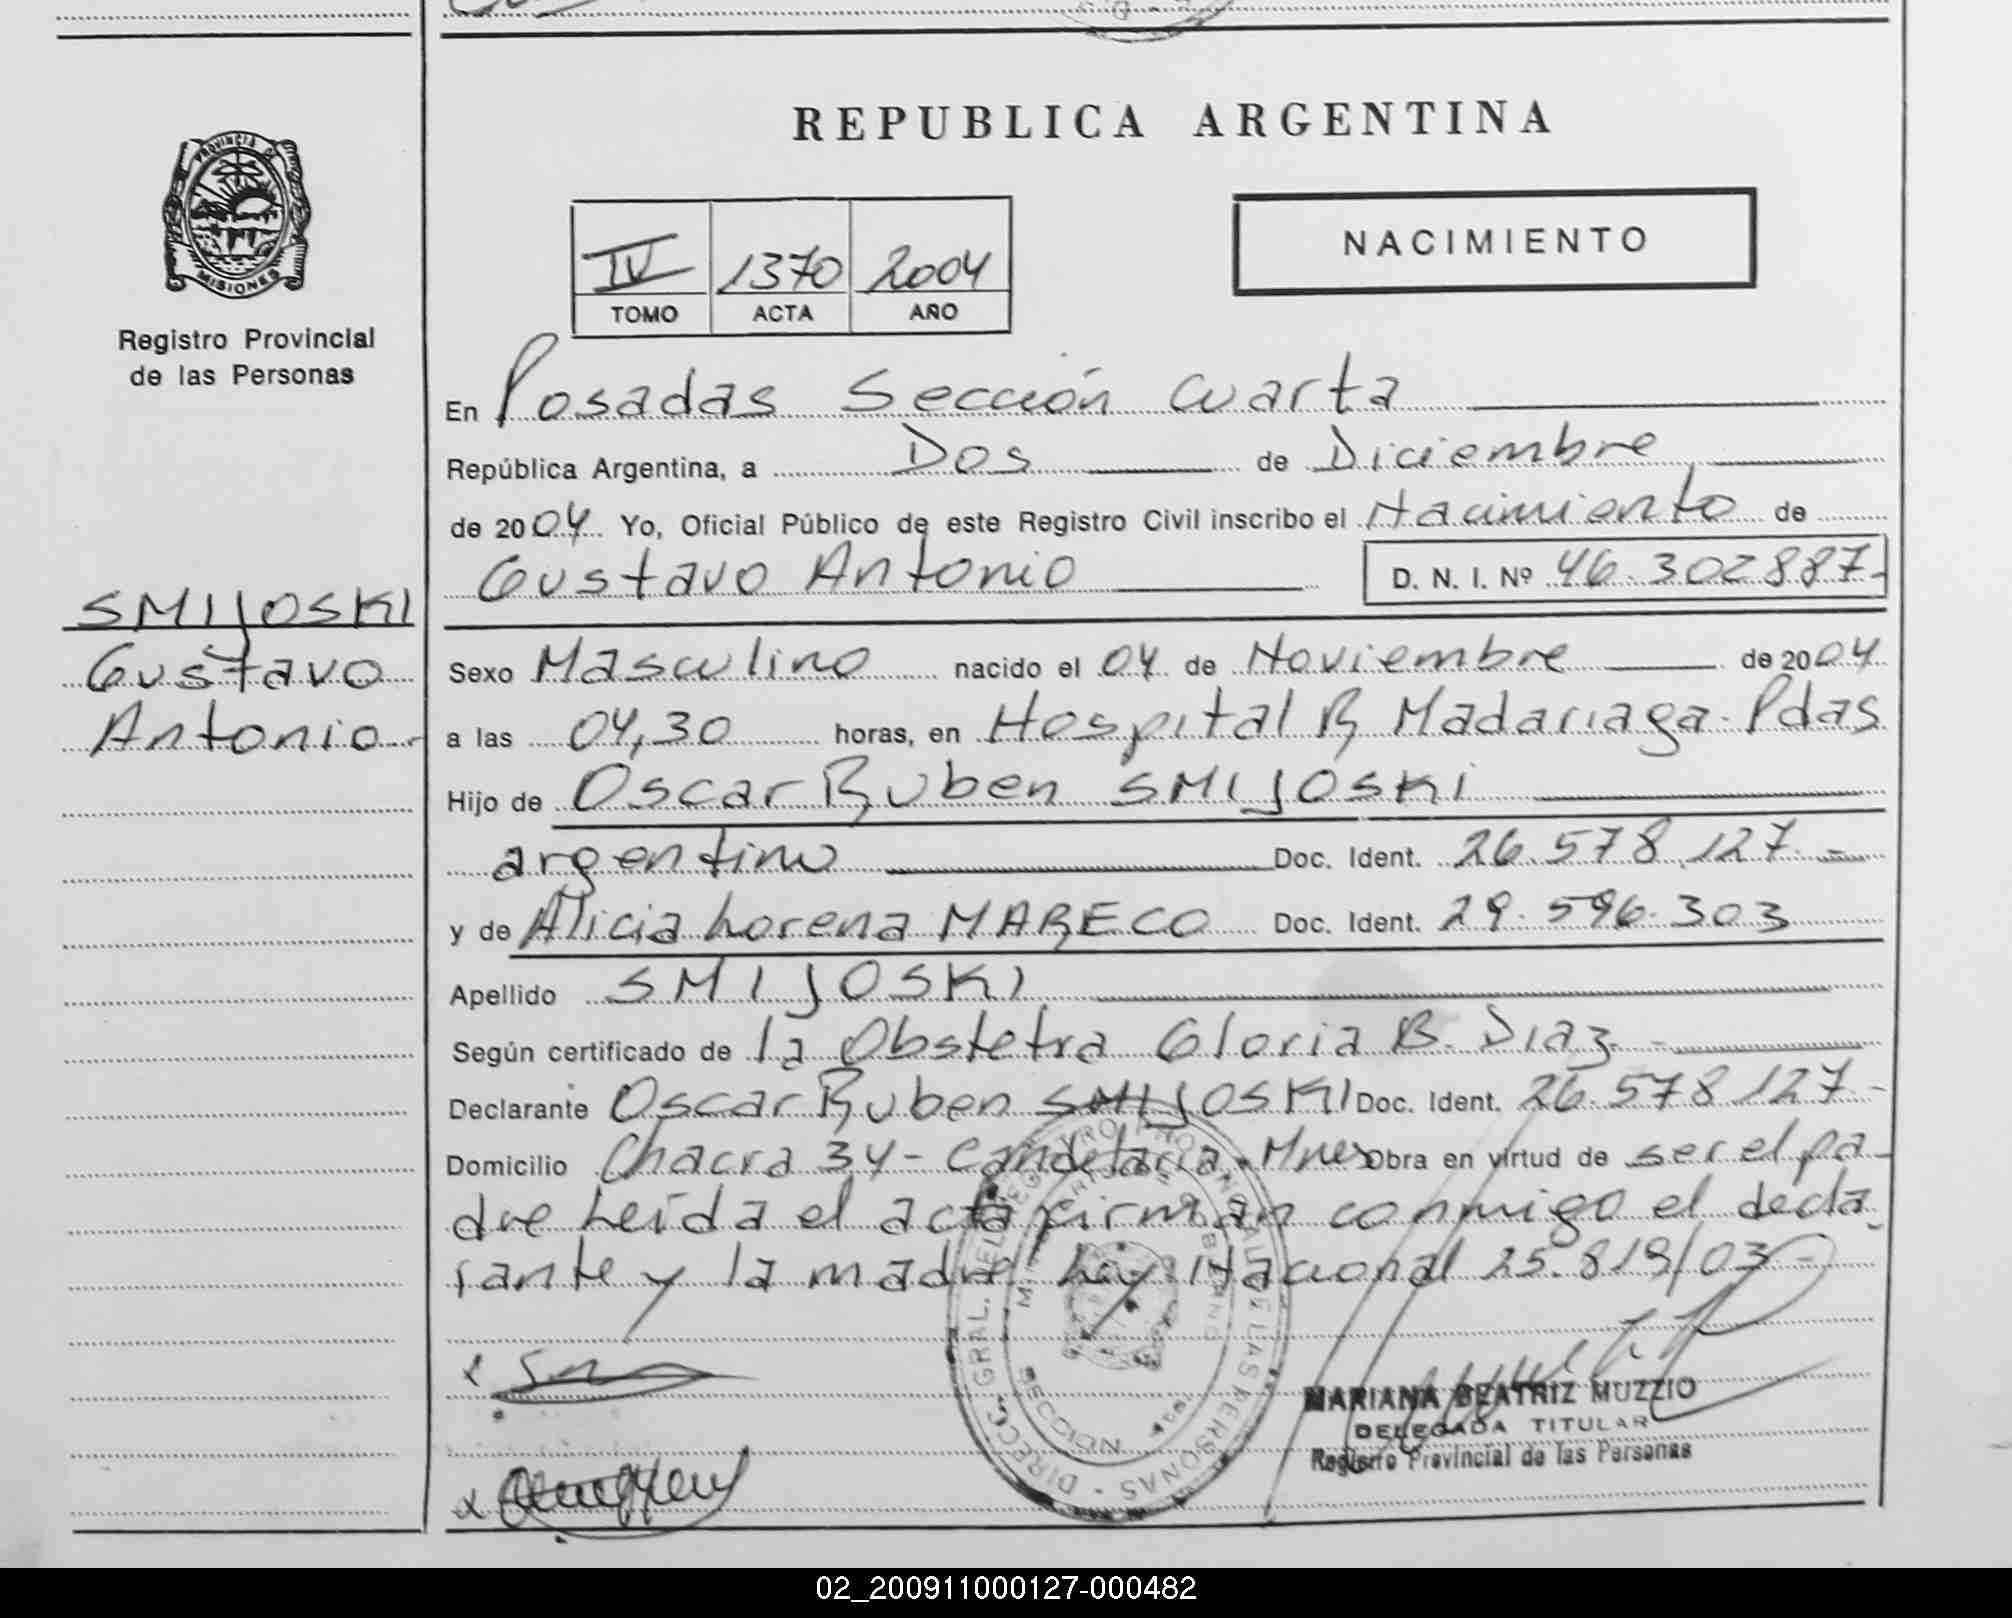 REPUBLICA ARGENTINA
PROVINCIA DE
MISIONES
Registro Provincial
de las Personas
IV 1370 2004
TOMO ACTA AÑO
NACIMIENTO
En Posadas Sección Cuarta
República Argentina, a Dos de Diciembre
de 2004 Yo, Oficial Público de este Registro Civil inscribo el Nacimiento de
Gustavo Antonio D. N. I. Nº 46.302887-
SMIJOSKI
Gustavo
Antonio.-
Sexo Masculino nacido el 04 de Noviembre de 2004
a las 04,30 horas, en Hospital R. Madariaga-Pdas
Hijo de Oscar Ruben SMIJOSKI
argentino Doc. Ident. 26.578.127.-
y de Alicia Lorena MARECO Doc. Ident. 29.596.303
Apellido SMIJOSKI
Según certificado de la Obstetra Gloria B. Diaz.-
Declarante Oscar Ruben SMIJOSKI Doc. Ident. 26.578.127-
Domicilio Chacra 34- Candelaria. Mnes Obra en virtud de ser el pa-
dre Leída el acta firman conmigo el decla-
rante y la madre Ley Nacional 25.819/03-
DIRECC. GRAL. DEL REGISTRO PROVINCIAL DE LAS PERSONAS
SECCION
MARIANA BEATRIZ MUZZIO
DELEGADA TITULAR
Registro Provincial de las Personas
02_200911000127-000482